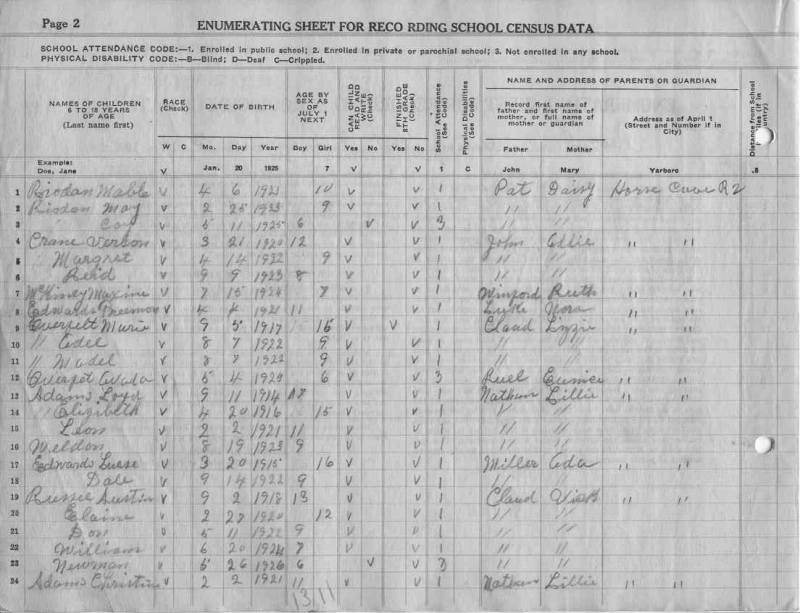 Page 2
ENUMERATING SHEET FOR RECO RDING SCHOOL CENSUS DATA
SCHOOL ATTENDANCE CODE:—1. Enrolled in public school; 2. Enrolled in private or parochial school; 3. Not enrolled in any school.
PHYSICAL DISABILITY CODE:—B—Blind; D—Deaf C—Crippled.
NAMES OF CHILDREN 6 TO 18 YEARS OF AGE (Last name first)
RACE (Check)
DATE OF BIRTH
AGE BY SEX AS OF JULY 1 NEXT
CAN CHILD READ AND WRITE (Check)
FINISHED 8TH GRADE (Check)
School Attendance (See Code)
Physical Disabilities (See Code)
NAME AND ADDRESS OF PARENTS OR GUARDIAN
Record first name of father and first name of mother, or full name of mother or guardian
Address as of April 1 (Street and Number if in City)
Distance from School
W C Mo. Day Year Boy Girl Yes No Yes No Father Mother
Example: Doe, Jane V Jan. 20 1925 7 V V 1 C John Mary Yarboro .8
1 Riordan Mable V 4 6 10 V V 1 Pat Daisy Horse Cave R2
2 May V 2 25 9 V V 1 " "
3 Coy V 5 11 1925 6 V V 3 " "
4 Crane Vernon V 3 21 1920 12 V V 1 John Ollie " "
5 Margret V 4 14 1922 9 V V 1 " "
6 V 9 9 1923 8 V V 1 " "
7 McKinney Maxine V 7 15 1924 7 V V 1 Winford Ruth " "
8 Edwards V 4 4 1921 11 V V 1 Luke Nora " "
9 Everett Marie V 9 5 1917 15 V V 1 Claud Lizzie " "
10 " V 8 7 1922 9 V V 1 " "
11 " V 8 7 1922 9 V V 1 " "
12 V 5 4 6 V V 3 Ruel Eunice " "
13 Adams Loyd V 9 11 1914 V V 1 Nathan Lillie " "
14 " Elizibeth V 4 20 1916 15 V V 1 " "
15 Leon V 2 2 1921 11 V V 1 " "
16 Weldon V 8 19 1923 9 V V 1 " "
17 Edwards V 3 20 1915 16 V V 1 Miller Ada " "
18 Dale V 9 14 1922 9 V V 1 " "
19 Austin V 9 2 1918 13 V V 1 Claud " "
20 Elaine V 2 27 1920 12 V V 1 " "
21 Don V 5 11 1922 9 V V 1 " "
22 William V 6 20 1924 7 V V 1 " "
23 Newman V 5 26 1926 6 V V 3 " "
24 Adams Christine V 2 2 1921 11 V V 1 Nathan Lillie " "
13 11